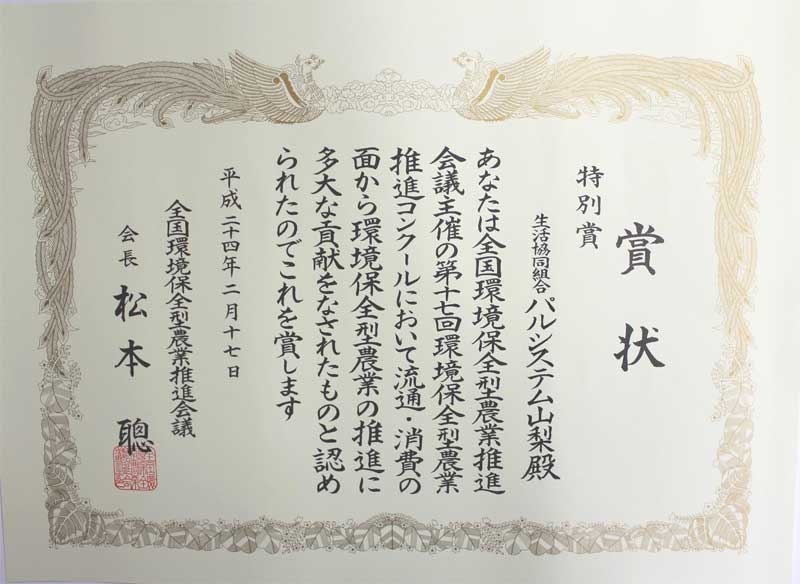 賞状
特別賞
生活協同組合 パルシステム山梨殿
あなたは全国環境保全型農業推進
会議主催の第十七回環境保全型農業
推進コンクールにおいて流通・消費の
面から環境保全型農業の推進に
多大な貢献をなされたものと認め
られたのでこれを賞します
平成二十四年二月十七日
全国環境保全型農業推進会議
会長 松本聰